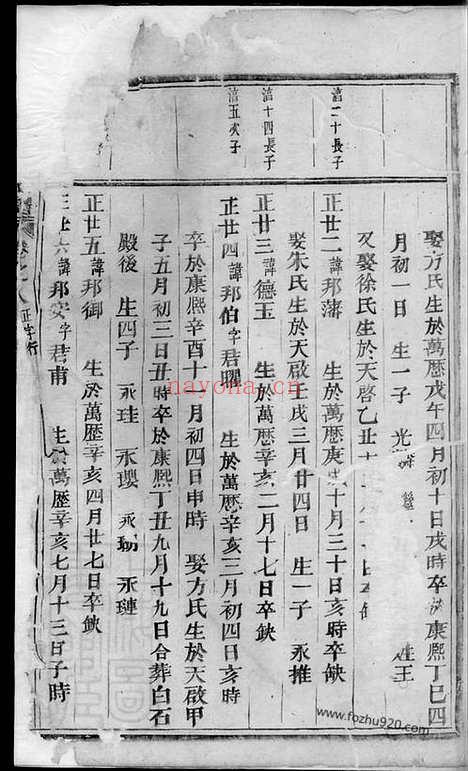 娶方氏生於萬曆戊午四月初十日戌時卒於康熙丁巳四
月初一日 生一子 光 姓王
又娶徐氏生於天啓乙丑十
湻二十長子
正廿二諱邦藩 生於萬曆庚戌十月三十日亥時卒缺
娶朱氏生於天啟壬戌三月廿四日 生一子 永推
湻十四長子
正廿三諱德玉 生於萬曆辛亥二月十七日卒缺
湻五次子
正廿四諱邦伯字君曜 生於萬曆辛亥三月初四日亥時
卒於康熙辛酉十一月初四日申時 娶方氏生於天啟甲
子五月初三日丑時卒於康熙丁丑九月十九日合葬白石
殿後 生四子 永珪 永瓔 永瑒 永璉
正廿五諱邦御 生於萬曆辛亥四月廿七日卒缺
正廿六諱邦安字君甫 生於萬曆辛亥七月十三日子時
正字行
nayona.cn
www.fozhu920.com